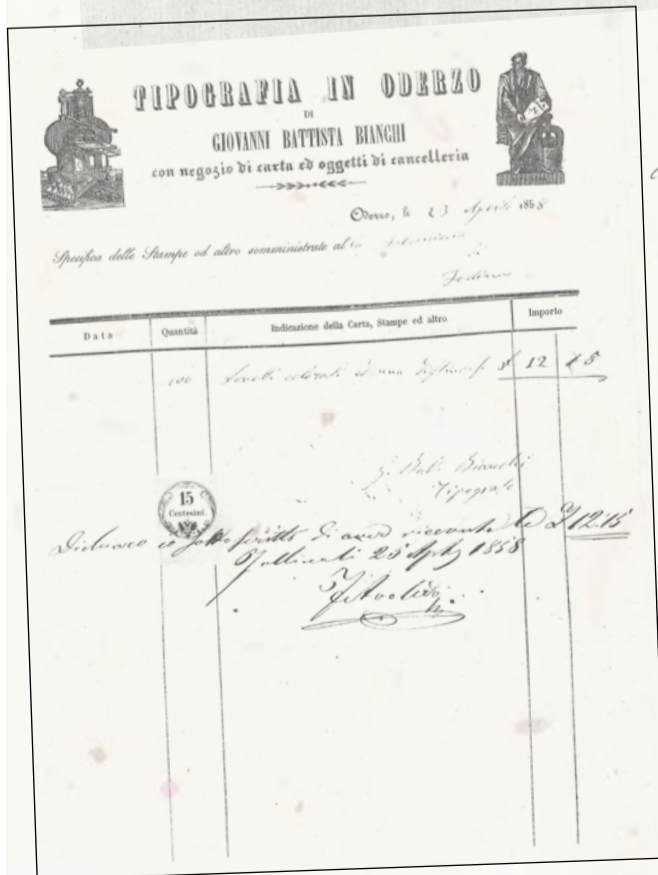 TIPOGRAFIA IN ODERZO
DI
GIOVANNI BATTISTA BIANCHI
con negozio di carta ed oggetti di cancelleria
Oderzo, li 23 Aprile 1858
Specifica delle Stampe od altro somministrate al
di
Data Quantità Indicazione della Carta, Stampe ed altro Importo
100 colorati ed una £ 12 15
G. Bat. Bianchi
Tipografo
15
Centesimi
Dichiaro io sottoscritto di aver ricevuto le £ 12.15
25 1858